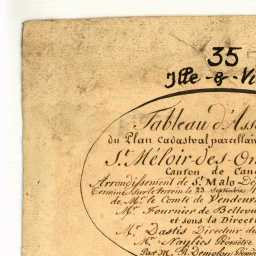 35
Ille-&-Vi
Tableau d'Ass
du Plan Cadastral parcellair
St. Méloir-des-On
Canton de Can
Arrondissement de St. Malo Dé
Terminé sur le terrein le 23 septembre
de Mr. le Comte de Vendeuv
Mr. Fournier de Bellevu
et sous la Direct
Mr. Dastis Directeur du
Mr. Naylies
Par M.